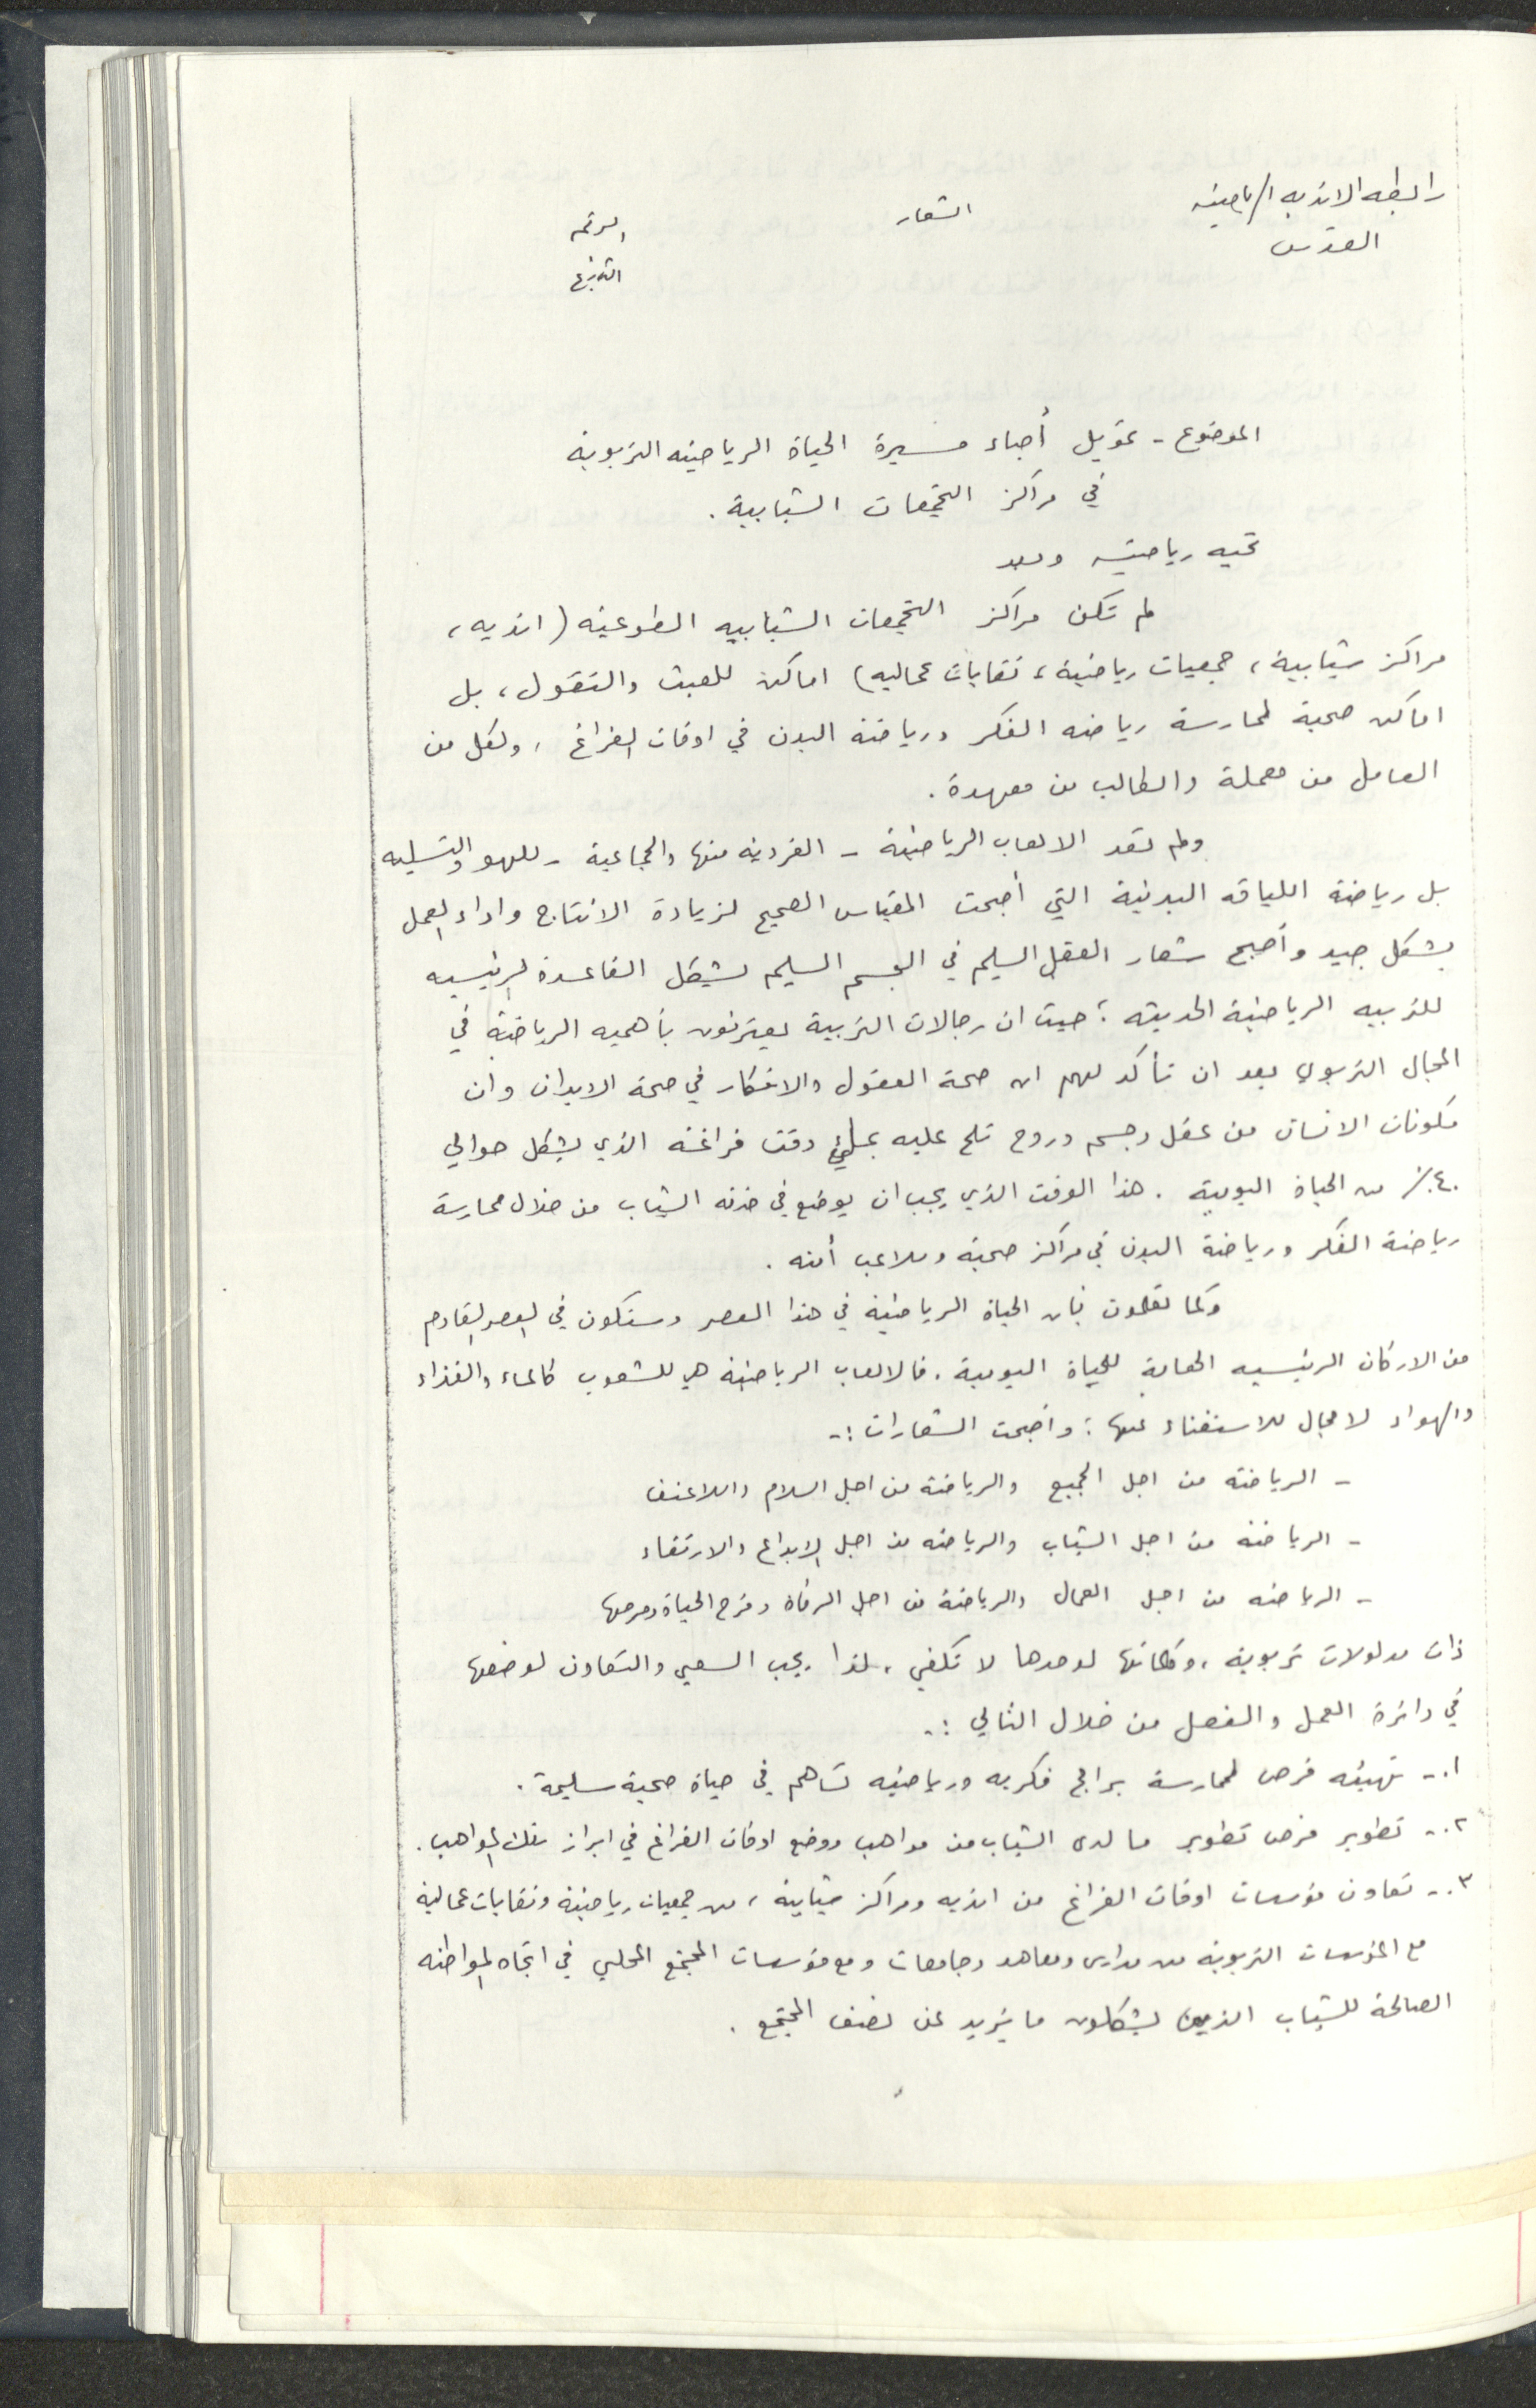 رابطه الانديه الرياضيه
الشعار
الرقم
القدس
التاريخ
الموضوع - تمويل أحياء مسيرة الحياة الرياضيه التربوية
في مراكز التجمعات الشبابية .
تحيه رياضيه وبعد
لم تكن مراكز التجمعات الشبابيه الطوعيه ( انديه ،
مراكز شبابية ، جمعيات رياضية ، نقابات عماليه ) اماكن للعبث والتقول ، بل
اماكن صحية لممارسة رياضه الفكر ورياضة البدن في اوقات الفراغ ، ولكل من
العامل من معملة والطالب من معهدة .
ولم تعد الالعاب الرياضية - الفردية منها والجماعية - للهو والتسليه
بل رياضة اللياقه البدنية التي أصبحت المقياس الصحيح لزيادة الانتاج واداء العمل
بشكل جيد وأصبح شعار العقل السليم في الجسم السليم يشكل القاعدة الرئيسيه
للتربيه الرياضية الحديثه ؛ حيث ان رجالات التربية يعترفون بأهميه الرياضة في
المجال التربوي بعد ان تأكد لهم ان صحة العقول والافكار في صحة الابدان وان
مكونات الانسان من عقل وجسم وروح تلح عليه بملئ وقت فراغه الذي يشكل حوالي
٤٠٪ من الحياة اليومية . هذا الوقت الذي يجب ان يوضع في خدمة الشباب من خلال ممارسة
رياضة الفكر ورياضة البدن في مراكز صحية وملاعب أمنه .
وكما تعلمون فان الحياة الرياضية في هذا العصر وستكون في العصر القادم
من الاركان الرئيسيه الهامة للحياة اليومية . فالالعاب الرياضية هي للشعوب كالماء والغذاء
والهواء لا مجال للاستغناء عنها ؛ وأصبحت الشعارات :-
- الرياضة من اجل الجميع والرياضة من اجل السلام واللاعنف
- الرياضة من اجل الشباب والرياضه من اجل الابداع والارتقاء
- الرياضه من اجل العمال والرياضة من اجل الرفاة وفرح الحياة ومرحها
ذات مدلولات تربوية ، وكلماتها لوحدها لا تكفي ، لذا يجب السعي والتعاون لوضعها
في دائرة العمل والفعل من خلال التالي :-
١.- تهيئه فرص لممارسة برامج فكريه ورياضيه تساهم في حياة صحية سليمة .
٢.- تطوير فرص تطوير ما لدى الشباب من مواهب ووضع اوقات الفراغ في ابراز تلك المواهب .
٣.- تعاون مؤسسات اوقات الفراغ من انديه ومراكز شبابية ، من جمعيات رياضية ونقابات عمالية
مع المؤسسات التربوية من مدارس ومعاهد وجامعات ومع مؤسسات المجتمع المحلي في اتجاه المواطنه
الصالحة للشباب الذين يشكلون ما يزيد عن نصف المجتمع .